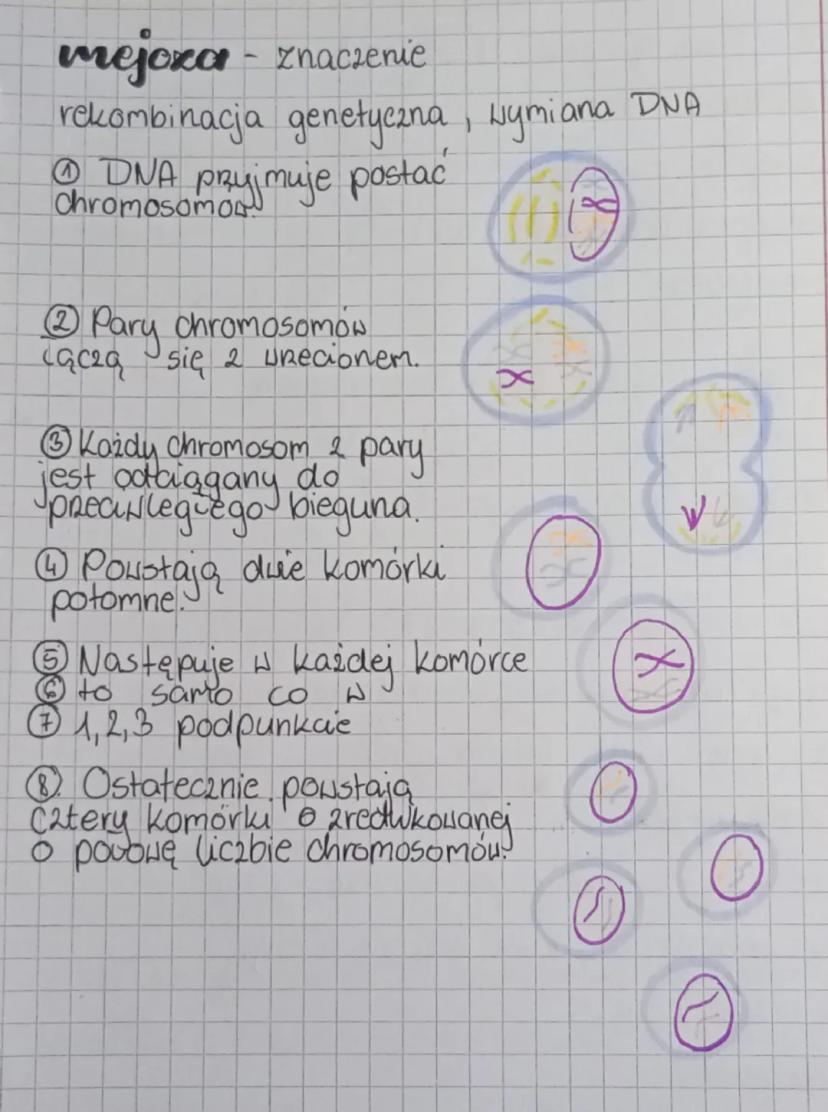 mejoza - znaczenie
rekombinacja genetyczna, wymiana DNA
① DNA przyjmuje postać
chromosomów.
② Pary chromosomów
łączą się z wrzecionem.
③ Każdy chromosom z pary
jest odciągany do
przeciwległego bieguna.
④ Powstają dwie komórki
potomne.
⑤ Następuje w każdej komórce
⑥ to samo co w
⑦ 1,2,3 podpunkcie
⑧. Ostatecznie powstają
cztery komórki o zredukowanej
o połowę liczbie chromosomów.